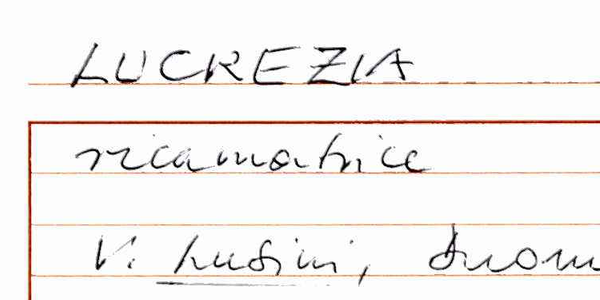 LUCREZIA
ricamatrice
V. Lusini, Duom